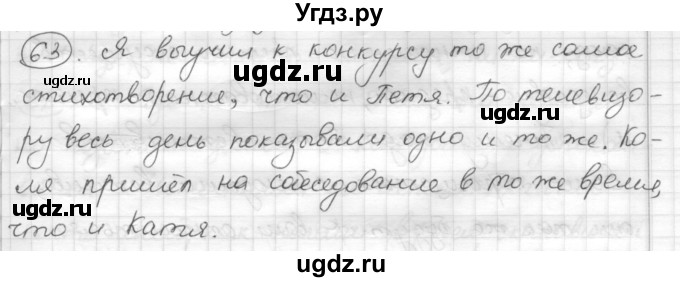 Угдз.ру
63. Я выучил к конкурсу то же самое
ugdz.ru ugdz.ru
стихотворение, что и Петя. По телевизо-
ugdz.ru
ру весь день показывали одно и то же. Ко-
ugdz.ru
ля пришёл на собеседование в то же время,
ugdz.ru
что и Катя.
ugdz.ru